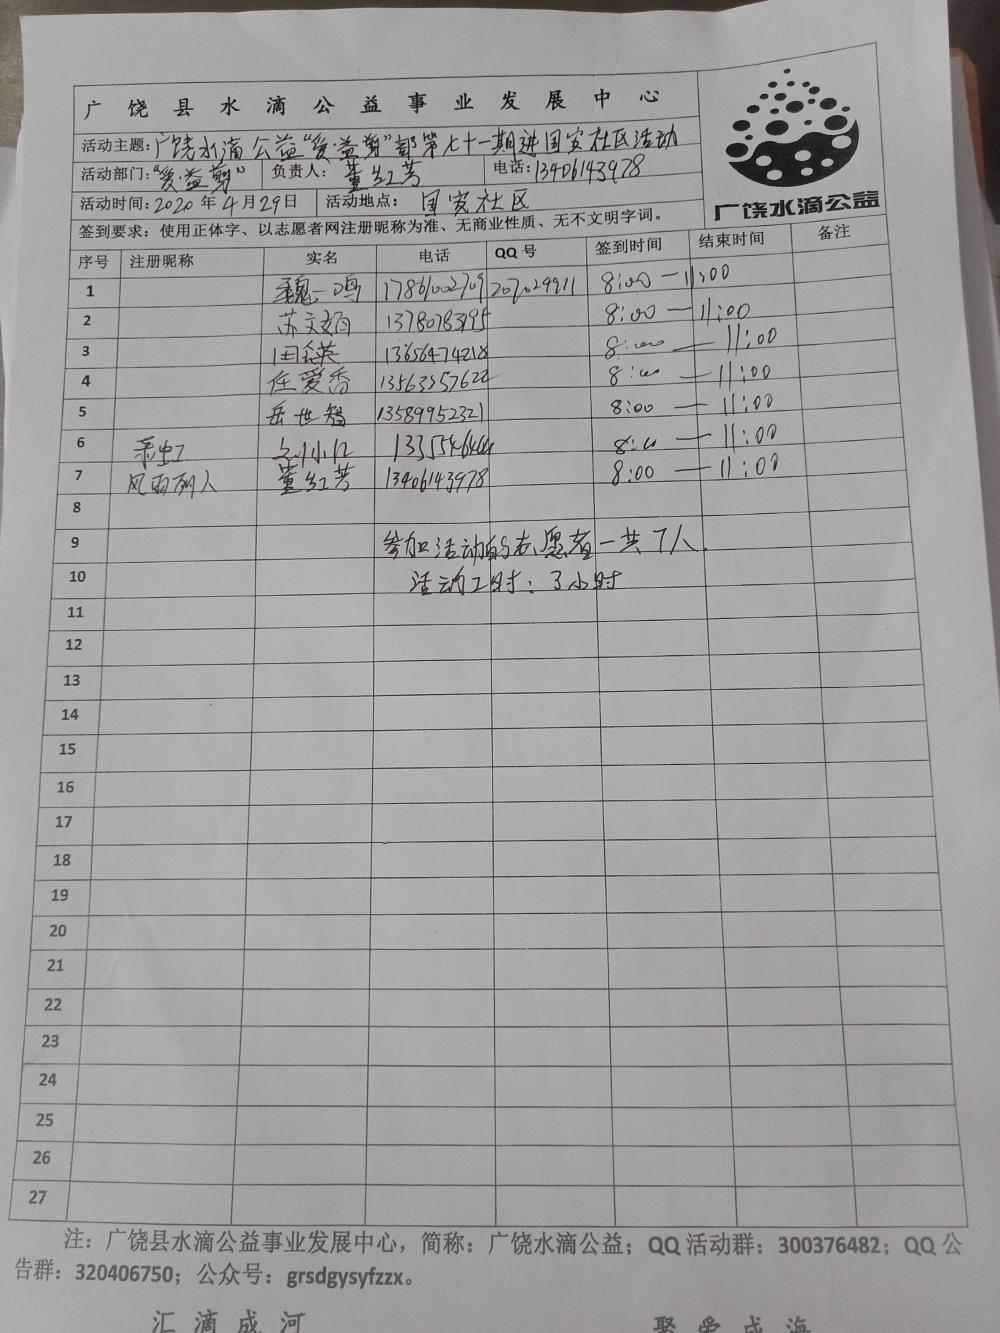 广饶县水滴公益事业发展中心
活动主题：广饶水滴公益“爱·益剪”部第七十一期进国安社区活动
活动部门：“爱·益剪” 负责人：董红芳 电话：13406143978
活动时间：2020年4月29日 活动地点：国安社区
广饶水滴公益
签到要求：使用正体字、以志愿者网注册昵称为准、无商业性质、无不文明字词。
序号 注册昵称 实名 电话 QQ号 签到时间 结束时间 备注
1 魏一鸣 17861002709 207029911 8:00—11:00
2 苏文 13780783195 8:00—11:00
3 13656474218 8:00—11:00
4 任爱香 13563557622 8:00—11:00
5 岳世智 13589952321 8:00—11:00
6 8:00—11:00
7 风雨 董红芳 13406143978 8:00—11:00
8
9 参加活动的志愿者一共7人.
10 活动工时：3小时
11
12
13
14
15
16
17
18
19
20
21
22
23
24
25
26
27
注：广饶县水滴公益事业发展中心，简称：广饶水滴公益；QQ活动群：300376482；QQ公
告群：320406750；公众号：grsdgysyfzzx。
汇滴成河 聚爱成海